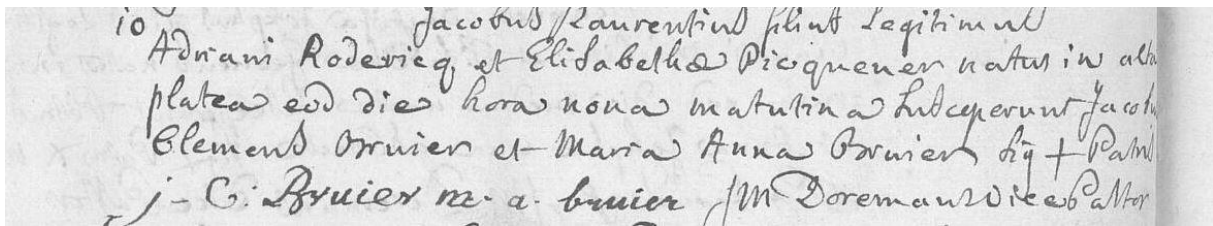 10 Jacobus Laurentius filius Legitimus
Adriani Rodericq et Elisabethæ Picquener natus in alta
platea eod die hora nona matutina Susceperunt Jacobus
Clemens Bruier et Maria Anna Bruier sig + Patris
j - C. Bruier m. a. bruier JM Doremans vice Pastor